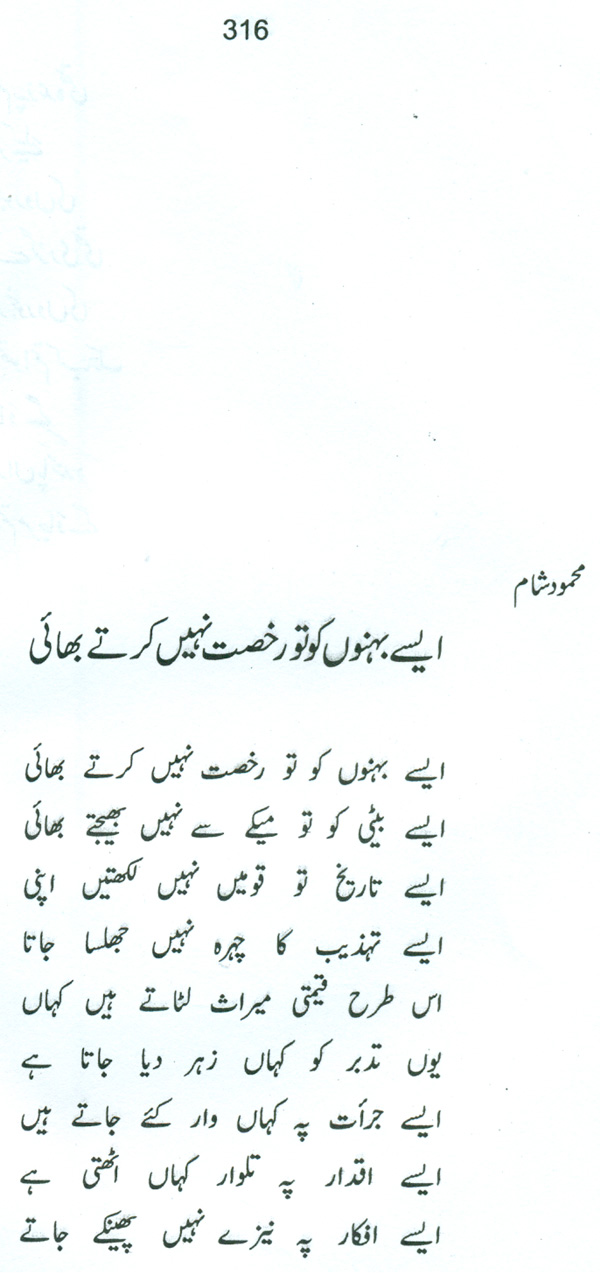 316
محمود شام
ایسے بہنوں کو تو رخصت نہیں کرتے بھائی
ایسے بہنوں کو تو رخصت نہیں کرتے بھائی
ایسے بیٹی کو تو میکے سے نہیں بھیجتے بھائی
ایسے تاریخ تو قومیں نہیں لکھتیں اپنی
ایسے تہذیب کا چہرہ نہیں جھلسا جاتا
اس طرح قیمتی میراث لٹاتے ہیں کہاں
یوں تدبر کو کہاں زہر دیا جاتا ہے
ایسے جرأت پہ کہاں وار کئے جاتے ہیں
ایسے اقدار پہ تلوار کہاں اٹھتی ہے
ایسے افکار پہ نیزے نہیں پھینکے جاتے